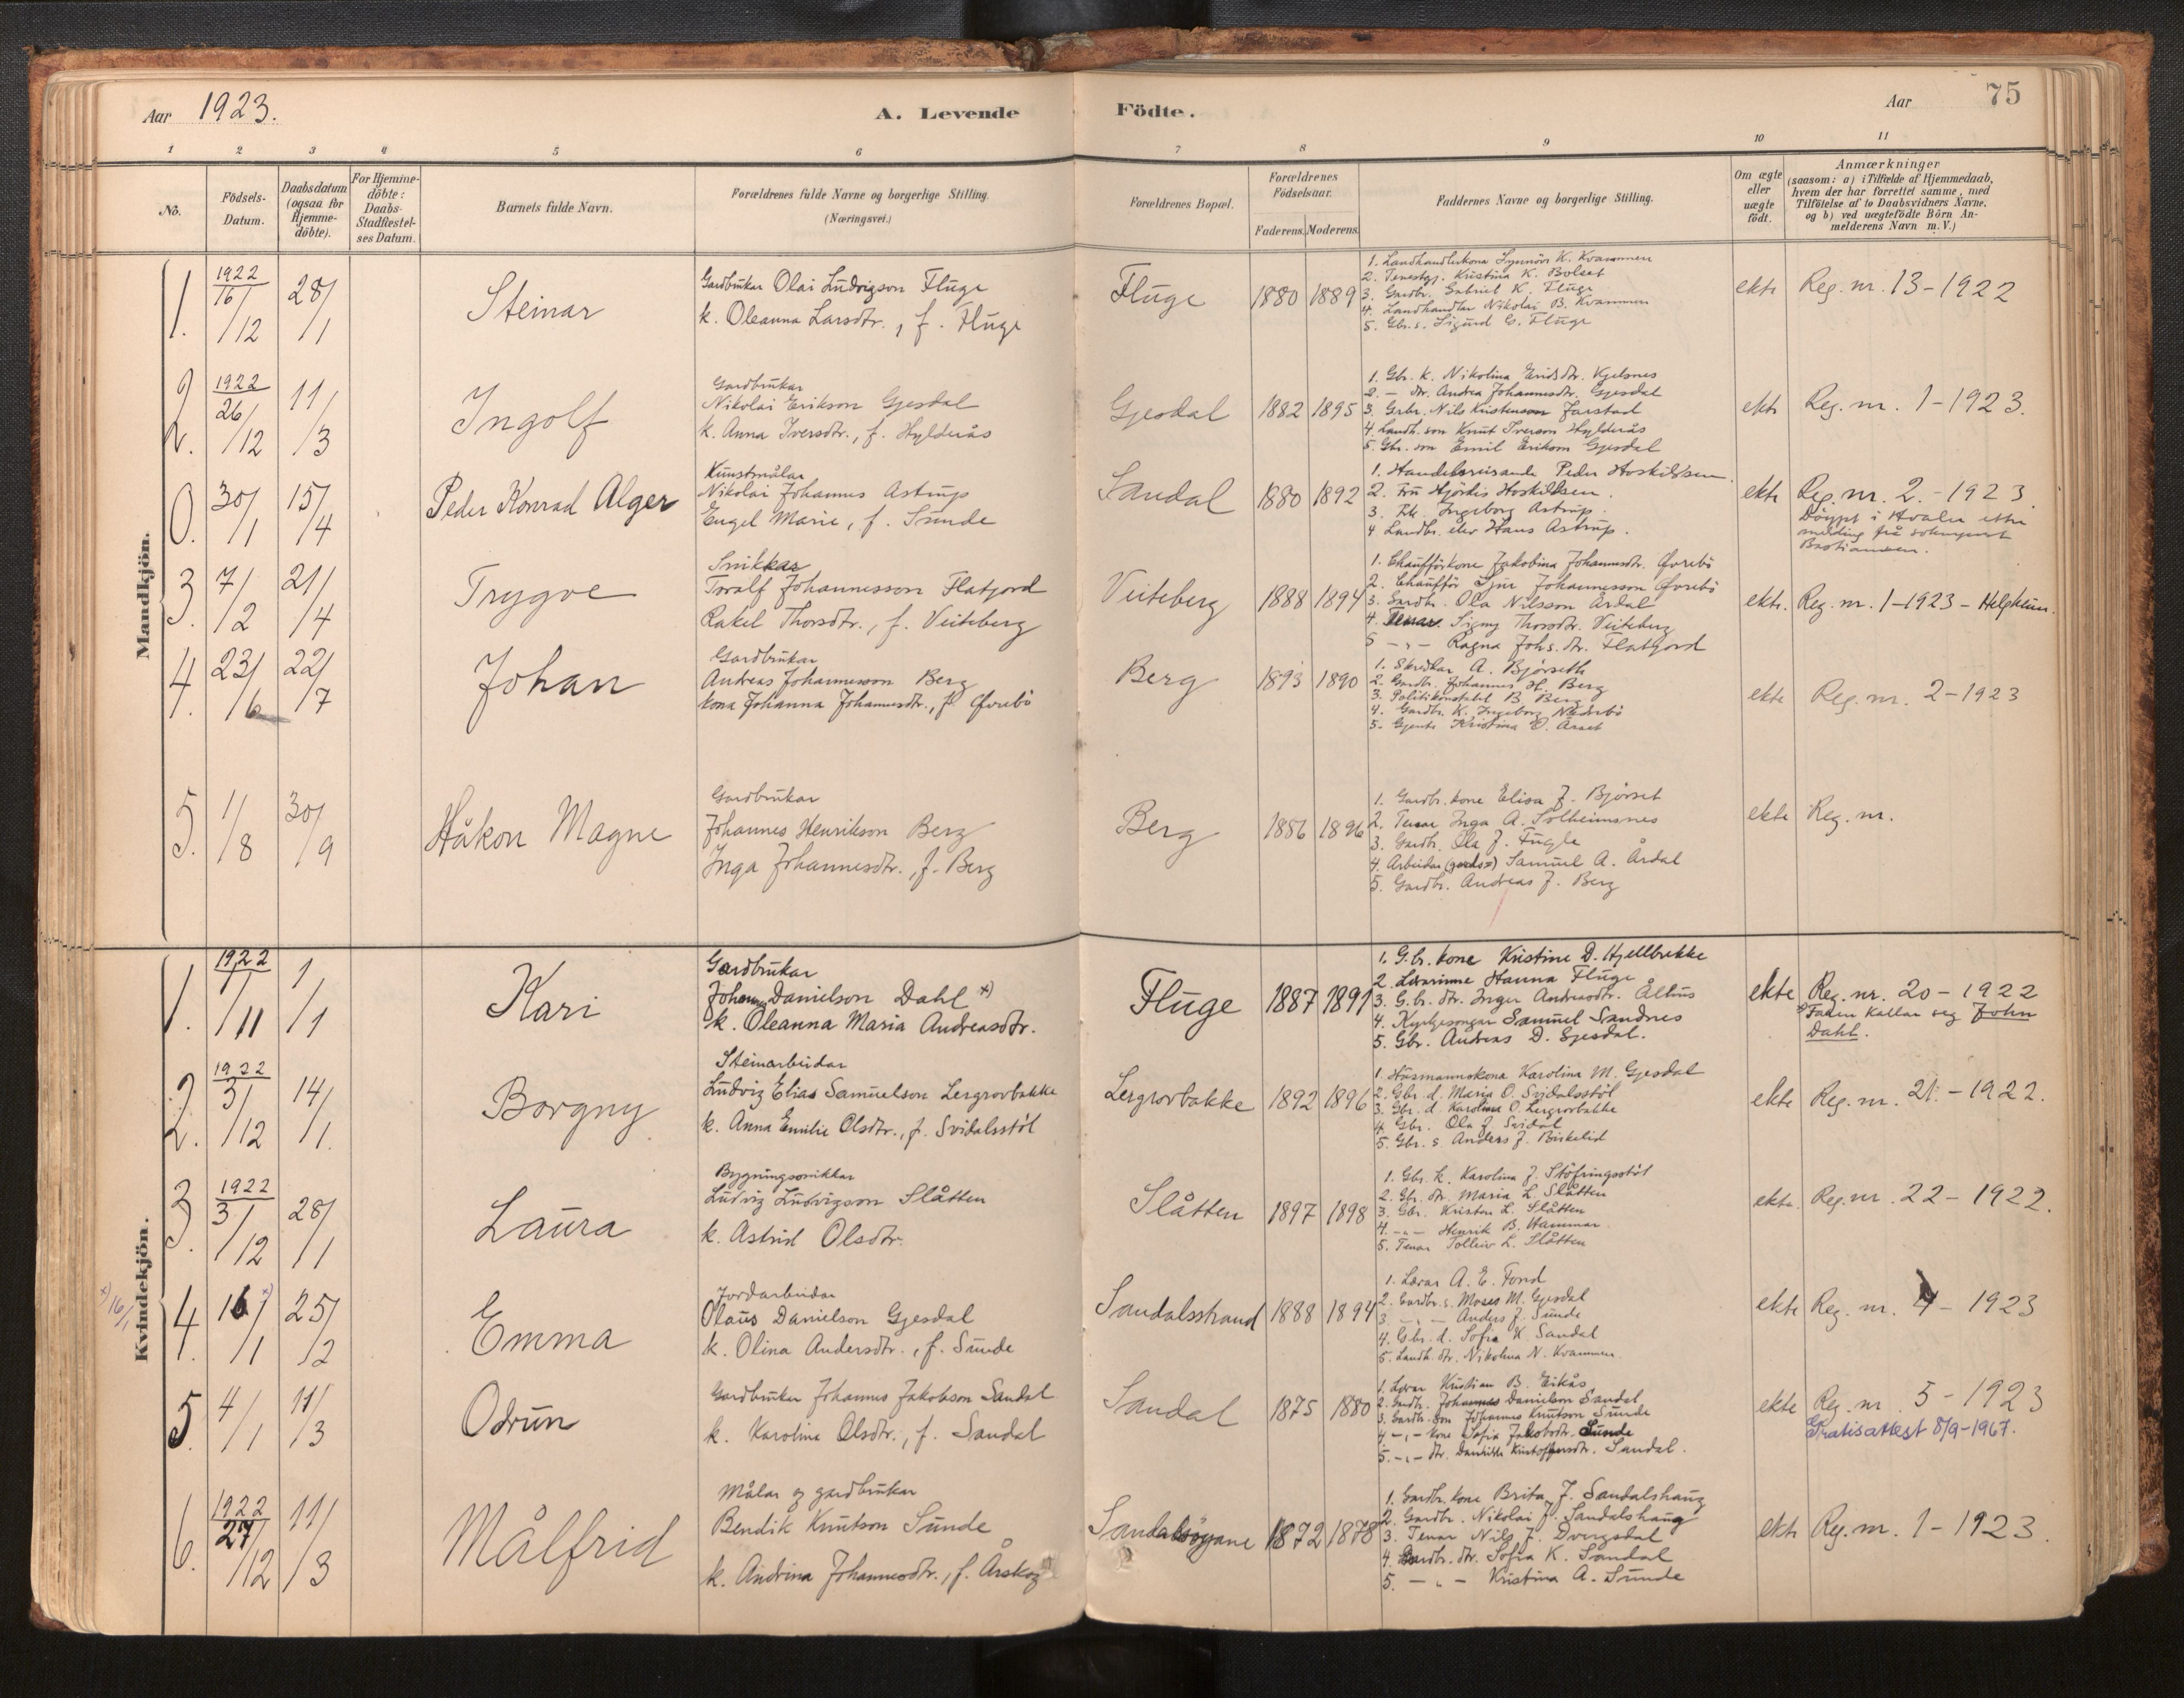 Aar 1923.
A. Levende Födte.
Aar 75
1 2 3 4 5 6 7 8 9 10 11
No.
Födsels-Datum.
Daabsdatum (ogsaa for Hjemme-döbte).
For Hjemme-döbte: Daabs-Stadfæstel-ses Datum.
Barnets fulde Navn.
Forældrenes fulde Navne og borgerlige Stilling. (Næringsvei.)
Forældrenes Bopæl.
Forældrenes Födselsaar.
Faderens. Moderens.
Faddernes Navne og borgerlige Stilling.
Om ægte eller uægte födt.
Anmærkninger
(saasom: a) i Tilfælde af Hjemmedaab,
hvem der har forrettet samme, med
Tilföielse af to Daabsvidners Navne,
og b) ved uægtefödte Börn An-
melderens Navn m. V.)
Mandkjön.
1. 1922 16/12 28/1
Steinar
Gardbrukar Olai Ludvigson Fluge
k. Oleanna Larsdtr., f. Fluge
Fluge 1880 1889
1. Landhandlarkona Synnöv K. Kvammen
2. Tenestgj. Kristina K. Bolset
3. Gardbr. Gabriel K. Fluge
4. Landhandlar Nikolai B. Kvammen
5. Gbr.s. Sigurd G. Fluge
ekte Reg. nr. 13-1922
2. 1922 26/12 11/3
Ingolf
Gardbrukar
Nikolai Erikson Gjesdal
k. Anna Iversdtr., f. Hylderås
Gjesdal 1882 1895
1. Gbr. k. Nikolina Eriksdtr. Kjelsnes
2. - dtr. Andrea Johannesdtr. Gjesdal
3. Grbr. Nils Kristenson Farstad
4. Landh. son Knut Iverson Hylderås
5. Gbr. son Emil Erikson Gjesdal
ekte Reg. nr. 1-1923.
0. 30/1 15/4
Peder Konrad Alger
Kunstmålar
Nikolai Johannes Astrup
Engel Marie, f. Sunde
Sandal 1880 1892
1. Handelsreisande Peder Hoskildsen.
2. Fru Hjördis Hoskildsen.
3. Frk. Ingeborg Astrup.
4 Landbr. elev Hans Astrup.
ekte Reg. nr. 2.-1923
Döypt i Hvaler etter
melding frå sokneprest
Bastiansen.
3. 7/2 21/4
Trygve
Snikkar
Toralf Johannesson Flatjord
Rakel Thorsdtr., f. Veiteberg
Veiteberg 1888 1894
1. Chaufförkone Jakobina Johannesdtr. Øvrebö
2. Chafför Sjur Johannesson Øvrebö
3. Gardbr. Ola Nilsson Årdal
4. Tenar Signy Thorsdtr. Veiteberg
5 -"- Ragna Johs.dtr. Flatjord
ekte. Reg. nr. 1-1923 - Helgheim.
4. 23/6 22/7
Johan
Gardbrukar
Andreas Johannesson Berg
kona Johanna Johannesdtr., f. Øvrebö
Berg 1893 1890
1. Skreddar A. Björseth
2. Gardbr. Johannes H. Berg
3. Politikonstabel B. Berg
4. Gardbr. K. Ingeborg Nedrebö
5. Gjente Kristina O. Årset
ekte Reg. nr. 2-1923
5. 1/8 30/9
Håkon Magne
Gardbrukar
Johannes Henrikson Berg
Inga Johannesdtr., f. Berg
Berg 1886 1896
1. Gardbr. kone Elisa J. Björset
2. Tenar Inga A. Solheimsnes
3. Gardbr. Ola J. Fugle
4. Arbeidar (gards=) Samuel A. Årdal
5. Gardbr. Andreas J. Berg
ekte Reg. nr.
Kvindekjön.
1. 1922 7/11 1/1
Kari
Gardbrukar
Johannes Danielson Dahl x)
k. Oleanna Maria Andreasdtr.
Fluge 1887 1891
1. G.br. kone Kristine D. Hjellbrekke
2. Lærarinne Hanna Fluge
3. G.br. dtr. Inger Andreasdtr. Ålhus
4. Kyrkjesongar Samuel Sandnes
5. Gbr. Andreas D. Gjesdal.
ekte Reg. nr. 20-1922
x) Faren kallar seg John
Dahl.
2. 1922 3/12 14/1.
Borgny
Steinarbeidar
Ludvig Elias Samuelson Lergrovbakke
k. Anna Emilie Olsdtr., f. Svidalsstöl
Lergrovbakke 1892 1896
1. Husmannskona Karolina M. Gjesdal
2. Gbr. d. Maria O. Svidalsstöl
3. Gbr. d. Karolina O. Lergrovbakke
4. Gbr. Ola J. Svidal
5. Gbr. s Anders J. Birkelid
ekte Reg. nr. 21.-1922.
3. 1922 3/12 28/1
Laura
Bygningssnikkar
Ludvig Ludvigson Slåtten
k. Astrid Olsdtr.
Slåtten 1897 1898
1. Gbr. k. Karolina J. Stöfringsstöl
2. Gbr. dtr. Maria L. Slåtten
3. Gbr. Kristen L. Slåtten
4. -"- Henrik B. Hammar
5. Tenar Tolleiv L. Slåtten
ekte. Reg. nr. 22-1922.
x) 16/1
4. 16/1 x) 25/2
Emma
Jordarbeidar
Olaus Danielson Gjesdal
k. Olina Andersdtr., f. Sunde
Sandalsstrand 1888 1894
1. Lærar A. E. Fond
2. Gardbr. s. Moses M. Gjesdal
3. -"- Anders J. Sunde
4. Gbr. d. Sofia K. Sandal
5. Landh. dtr. Nikolina N. Kvammen.
ekte Reg. nr. 4-1923
5. 4/1 11/3
Odrun
Gardbrukar Johannes Jakobson Sandal
k. Karolina Olsdtr., f. Sandal
Sandal 1875 1880
1. Lærar Kristian B. Eikås
2. Gardbr. Johannes Danielson Sandal
3. Gardbr. son Johannes Knutson Sunde
4 -"- kone Sofia Jakobsdtr. Sunde
5. -"- dtr. Danielle Kristoffersdtr. Sandal.
ekte Reg. nr. 5-1923
Gratisattest 8/9-1967.
6. 1922 27/12 11/3
Målfrid
Målar og gardbrukar
Bendik Knutson Sunde
k. Andrina Johannesdtr., f. Årskog
Sandalsöyane 1872 1878
1. Gardbr. kone Brita J. Sandalshaug
2. Gardbr. Nikolai J. Sandalshaug
3. Tenar Nils J. Dvergsdal
4. Gardbr. dtr. Sofia K. Sandal
5. -"- Kristina A. Sunde
ekte Reg. nr. 1-1923